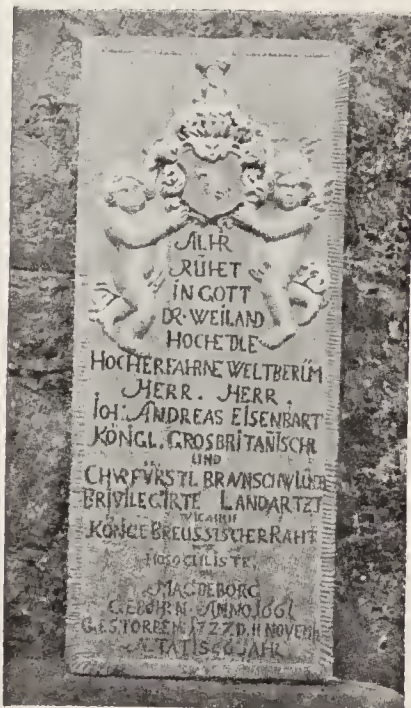 ALHR
RUHET
IN GOTT
DR WEILAND
HOCHEDLE
HOCHERFAHRNE WELTBERÜM
HERR. HERR.
IOH: ANDREAS EISENBART
KÖNGL. GROSBRITANISCHR
UND
CHVRFVRSTL BRAVNSCHW LÜNB
PRIVILEGIRTE LANDARTZT
WIE AUCH
KÖNGL PREUSSISCHER RAHT
OCULISTE
MAGDEBORG
GEBOHRN ANNO 1661
GESTORBEN 1727 D. 11 NOVEMB
ÆTATIS JAHR